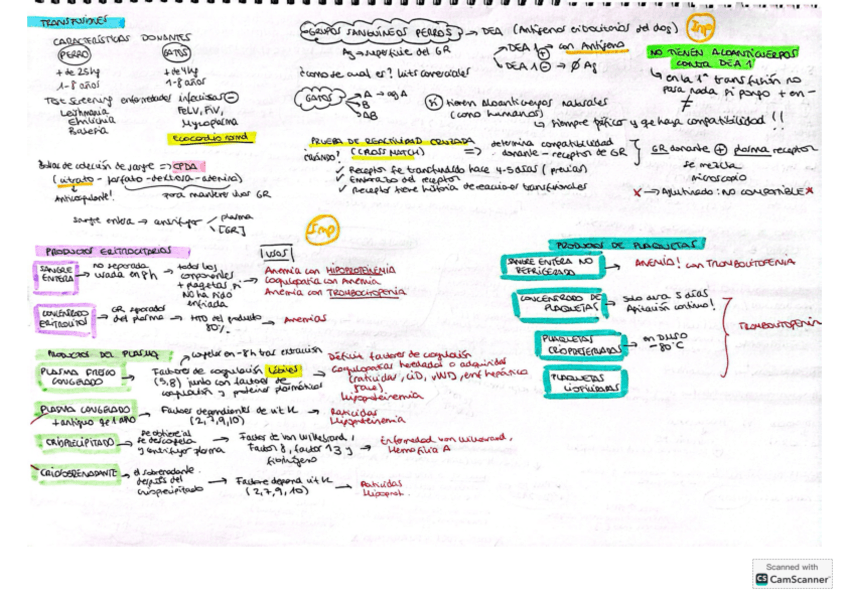 TRANSFUSIONES
CARACTERÍSTICAS DONANTES
PERRO GATOS
+ de 25kg + de 4kg
1-8 años 1-8 años
Test screening enfermedades infecciosas ⊖
Leishmania FeLV, FiV,
Ehrlichia Mycoplasma
Babesia
ecocardio
Bolsa de colección de sangre => CPDA
(citrato - fosfato - dextrosa - adenina)
Anticoagulante! para mantener vivos GR
sangre entera → centrifugar plasma
[GR]
GRUPOS SANGUÍNEOS PERROS → DEA (Antígenos eritrocitarios del dog)
Imp
Ag → superficie del GR
→ DEA 1 ⊕ → con Antígeno
→ DEA 1 ⊖ → Ø Ag
¿como se cual es? kits comerciales
NO TIENEN ALOANTICUERPOS
contra DEA 1
↳ en la 1ª transfusión no
pasa nada si pongo + en -
≠
GATOS → A → ag A
B
AB
tienen aloanticuerpos naturales
(como humanos)
↳ siempre tipificar y que haya compatibilidad!!
PRUEBA DE REACTIVIDAD CRUZADA
(CROSSMATCH) => determina compatibilidad
donante - receptor de GR
CUÁNDO?
✓ Receptor fue transfundido hace 4-5 días (previas)
✓ Embarazo del receptor
✓ Receptor tiene historia de reacciones transfusionales
GR donante ⊕ plasma receptor
se mezcla
microscopio
X → Aglutinado: NO COMPATIBLE X
Imp
PRODUCTOS ERITROCITARIOS
USOS
SANGRE ENTERA → no separada usada en 8h → todos los componentes + plaquetas si no ha sido enfriada
Anemia con HIPOPROTEINEMIA
Coagulopatía con Anemia
Anemia con TROMBOCITOPENIA
CONCENTRADO ERITROCITOS → GR separados del plasma → HTO del producto 80% → Anemias
PRODUCTOS DEL PLASMA
PLASMA FRESCO CONGELADO → congelar en -8h tras extracción
Factores de coagulación lábiles (5,8) junto con factores de coagulación y proteínas plasmáticas
Déficit factores de coagulación
Coagulopatías heredadas o adquiridas
(raticidas, CID, vWD, enf hepática
Hipoproteinemia
PLASMA CONGELADO + antiguo de 1 año → Factores dependientes de vit K (2,7,9,10) → Raticidas
Hipoproteinemia
CRIOPRECIPITADO → se obtiene al se descongela y centrifugar plasma → Factor de von Willebrand, Factor 8, factor 13 y fibrinógeno → Enfermedad von Willebrand, Hemofilia A
CRIOSOBRENADANTE → el sobrenadante después del crioprecipitado → Factores depend vit K (2,7,9,10) → Raticidas
Hipoprot.
PRODUCTOS DE PLAQUETAS
SANGRE ENTERA NO REFRIGERADA → ANEMIA! con TROMBOCITOPENIA
CONCENTRADO DE PLAQUETAS → Solo dura 5 días
Agitación continua!
PLAQUETAS CRIOPRESERVADAS → en DMSO
-80°C
PLAQUETAS LIOFILIZADAS
TROMBOCITOPENIA
Scanned with
CS CamScanner